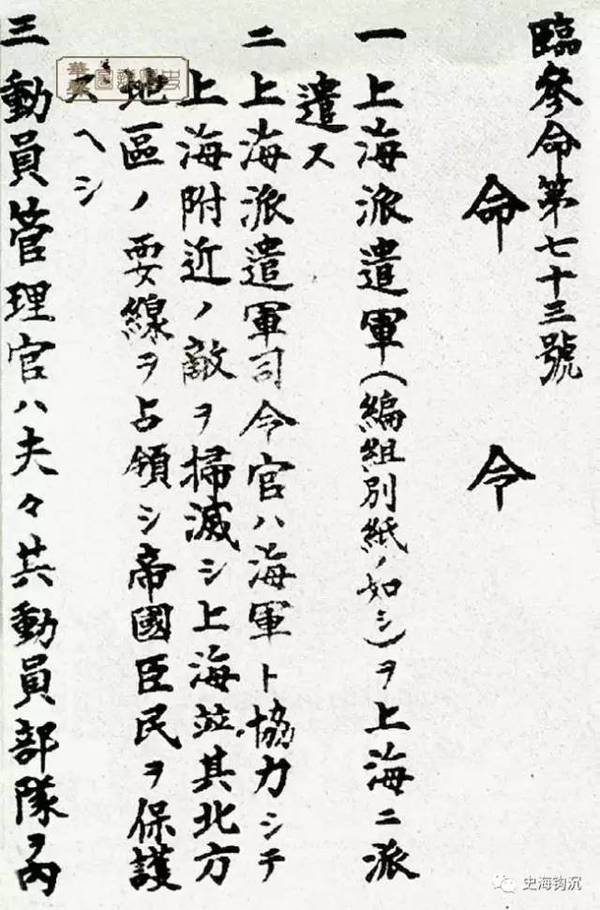 臨參命第七十三號
命令
一 上海派遣軍(編組別紙ノ如シ)ヲ上海ニ派
遣ス
二 上海派遣軍司令官ハ海軍ト協力シテ
上海附近ノ敵ヲ掃滅シ上海竝其北方
地區ノ要線ヲ占領シ帝國臣民ヲ保護
スヘシ
三 動員管理官ハ夫々其動員部隊ヲ內
史海钩沉